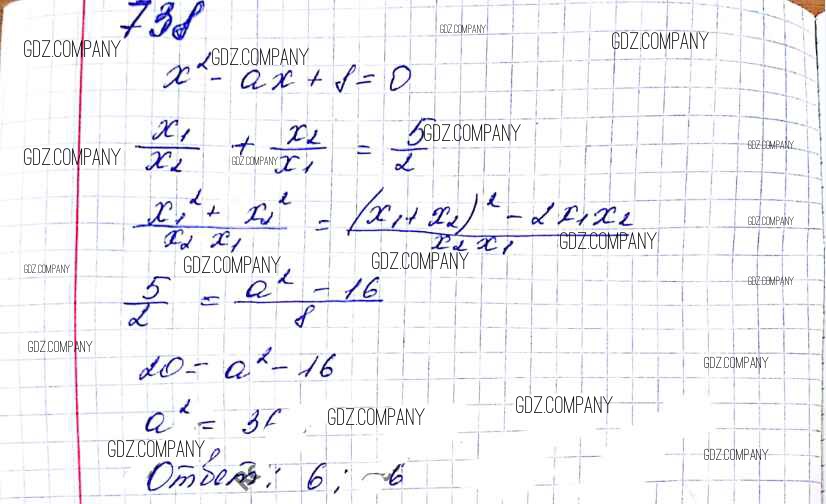 738
GDZ.COMPANY GDZ.COMPANY GDZ.COMPANY GDZ.COMPANY
x² - ax + 8 = 0
x₁/x₂ + x₂/x₁ = 5/2
GDZ.COMPANY GDZ.COMPANY GDZ.COMPANY GDZ.COMPANY
(x₁² + x₂²)/(x₂ x₁) = ((x₁ + x₂)² - 2x₁x₂)/(x₂ x₁)
GDZ.COMPANY GDZ.COMPANY
GDZ.COMPANY GDZ.COMPANY GDZ.COMPANY GDZ.COMPANY
5/2 = (a² - 16)/8
GDZ.COMPANY GDZ.COMPANY
20 = a² - 16
a² = 36
GDZ.COMPANY GDZ.COMPANY
GDZ.COMPANY GDZ.COMPANY
Ответ: 6; -6